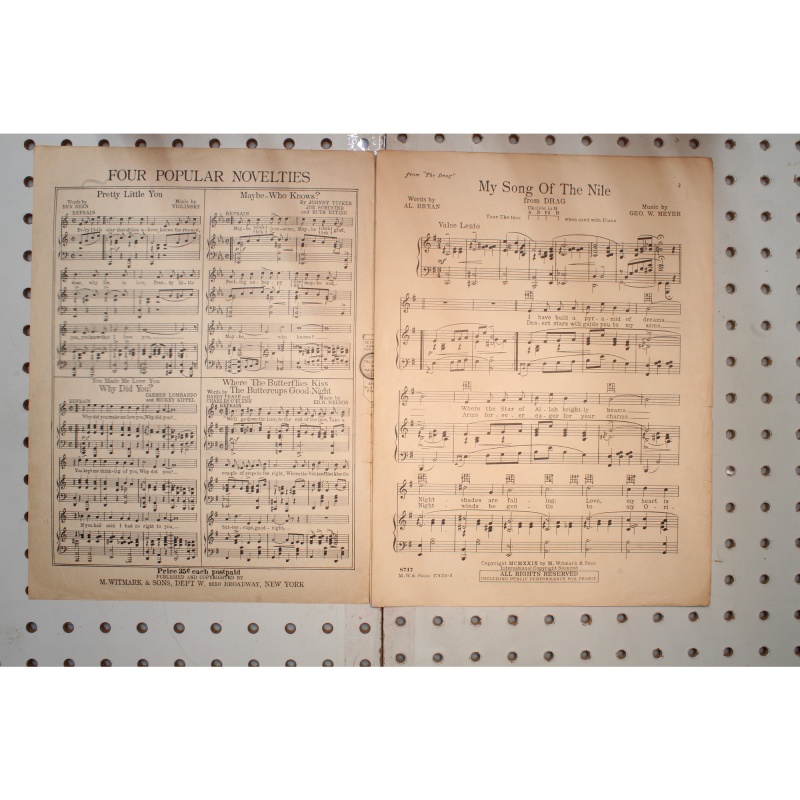 FOUR POPULAR NOVELTIES
Pretty Little You
Words by
BEN RYAN
Music by
VIOLINSKY
REFRAIN
you,
Maybe-Who Knows?
By JOHNNY TUCKER
JOE SCHUSTER
and RUTH ETTING
REFRAIN
May-be, who knows?
You Made Me Love You
Why Did You?
CARMEN LOMBARDO
and MICKEY KIPPEL
REFRAIN
Why did you make me love you, Why did you?
You kept me think-ing of you, Why did you?
Where The Butterflies Kiss
The Buttercups Good-Night
Words by
HARRY PEASE and
CHARLES O'FLYNN
Music by
ED. G. NELSON
REFRAIN
but-ter-cups good-night,
Price 35¢ each postpaid
PUBLISHED AND COPYRIGHTED BY
M. WITMARK & SONS, DEPT W. 1650 BROADWAY, NEW YORK
from "The Drag"
3
My Song Of The Nile
from DRAG
Words by
AL. BRYAN
Ukulele in G
Tune Uke thus
when used with Piano
Music by
GEO. W. MEYER
Valse Lento
mf
I have built a pyr-a-mid of dreams
Des-ert stars will guide you to my arms
Where the Star of Al-lah bright-ly beams
Arms for-ev-er ea-ger for your charms
Night shades are fall-ing, Love, my heart is
Night winds be gen-tle to my O-ri-
8737
M.W.& Sons
Copyright MCMXXIX by M. Witmark & Sons
International Copyright Secured
ALL RIGHTS RESERVED
INCLUDING PUBLIC PERFORMANCE FOR PROFIT